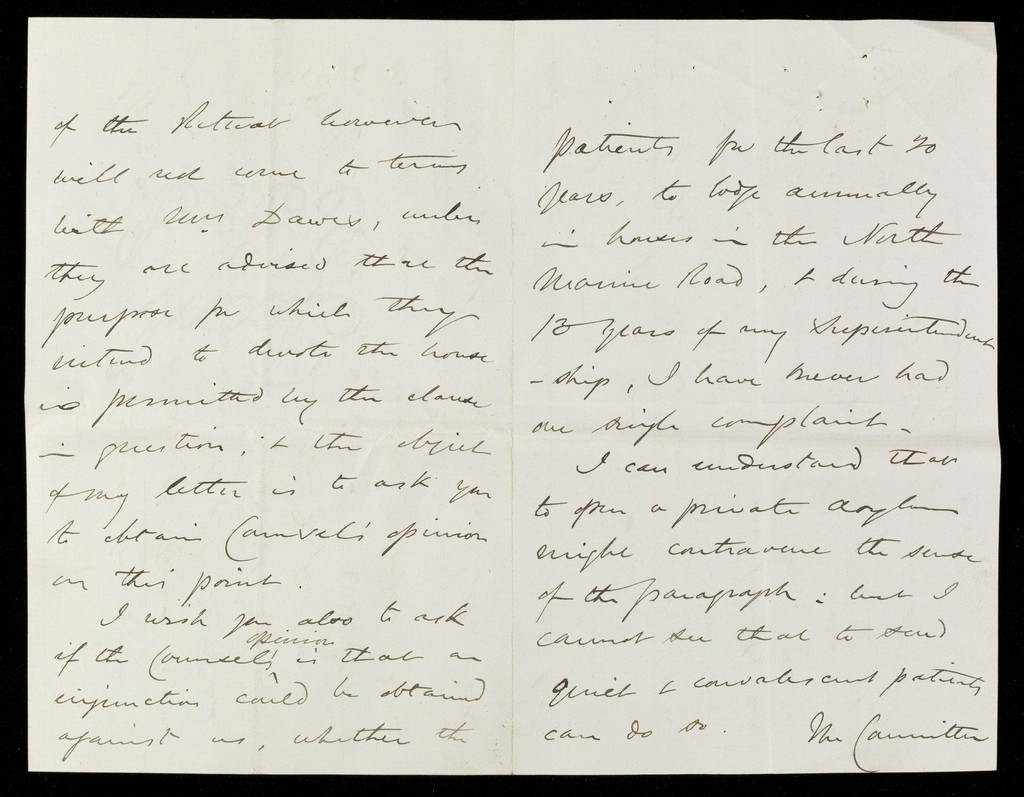 of the Retreat however
will not come to terms
with Mrs Dawes, unless
they are advised that the
purpose for which they
intend to devote the house
is permitted by the clause
in question; & the object
of my letter is to ask you
to obtain Counsel's opinion
on this point.
I wish you also to ask
if the Counsel's opinion is that an
injunction could be obtained
against us, whether the
patients for the last 20
years, to lodge annually
in houses in the North
Marine Road, & during the
13 years of my Superintendent
-ship, I have never had
one single complaint -
I can understand that
to open a private asylum
might contravene the sense
of the paragraph: but I
cannot see that to send
quiet & convalescent patients
can do so. The Committee